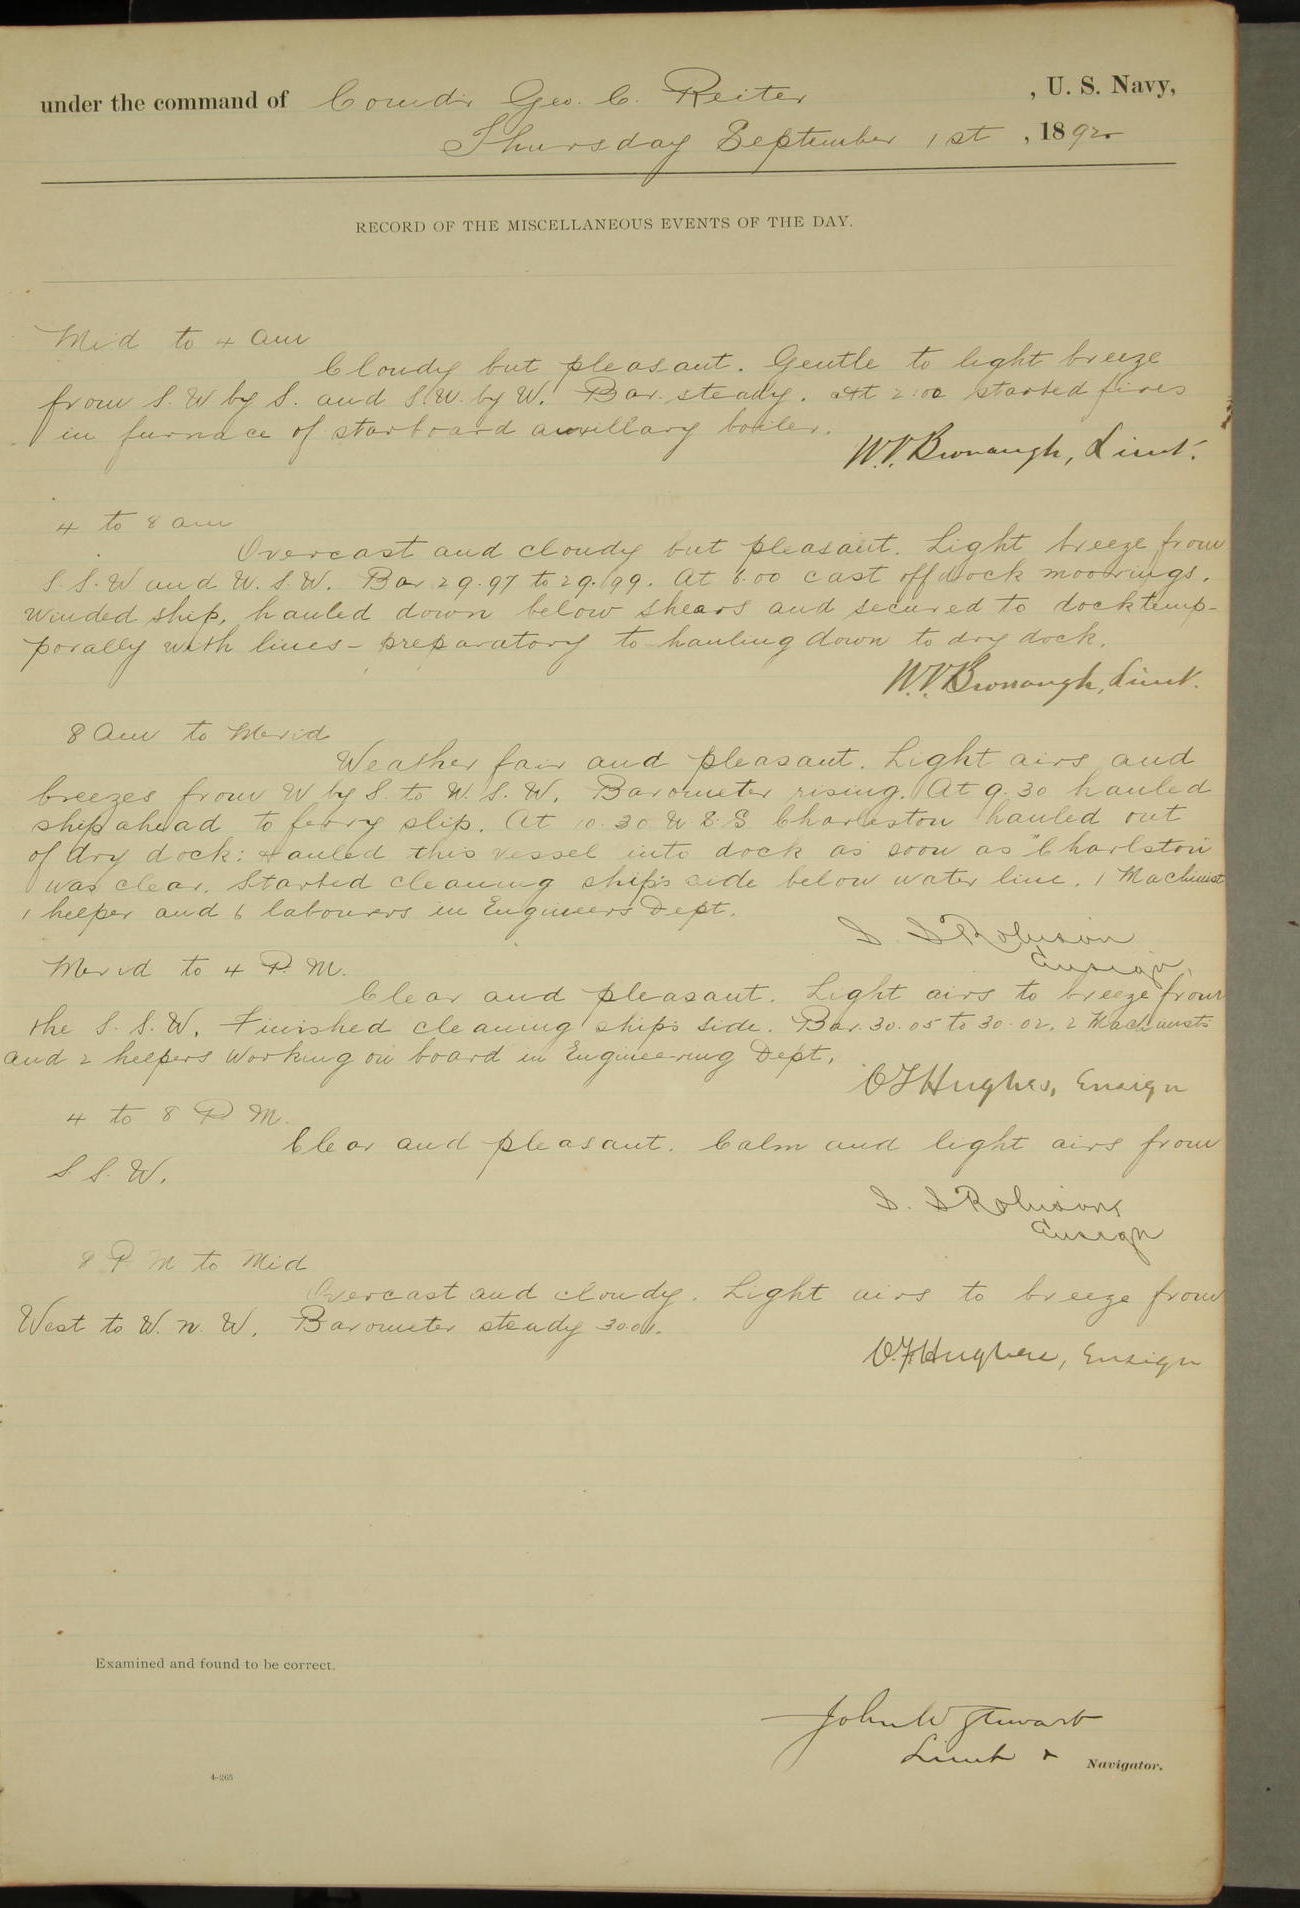 under the command of Comdr Geo. C. Reiter , U. S. Navy,
Thursday September 1st , 1892
RECORD OF THE MISCELLANEOUS EVENTS OF THE DAY.
Mid to 4 am
Cloudy but pleasant. Gentle to light breeze
from S. W by S. and S.W. by W. Bar. steady. At 2:00 started fires
in furnace of starboard auxillary boiler.
W.V. Bronaugh, Lieut.
4 to 8 am
Overcast and cloudy but pleasant. Light breeze from
S. S. W and W. S. W. Bar 29.97 to 29.99. At 6.00 cast off dock moorings.
Winded ship, hauled down below shears and secured to dock temp-
porally with lines - preparatory to hauling down to dry dock.
W.V. Bronaugh, Lieut.
8 am to Merid
Weather fair and pleasant. Light airs and
breezes from W by S. to W. S. W. Barometer rising. At 9.30 hauled
ship ahead to ferry slip. At 10.30 U S S Charleston hauled out
of dry dock: Hauled this vessel into dock as soon as "Charlston"
was clear. Started cleaning ship's side below water line. 1 Machinist
1 helper and 6 labourers in Engineers Dept.
S. S Robison
Ensign,
Merid to 4 P. M.
Clear and pleasant. Light airs to breeze from
the S. S. W. Finished cleaning ship's side. Bar. 30.05 to 30.02. 2 Machinists
and 2 helpers Working on board in Engineering Dept.
C F Hughes, Ensign
4 to 8 P M.
Clear and pleasant. Calm and light airs from
S S. W.
S. S Robison,
Ensign
8 P M to Mid
Overcast and cloudy. Light airs to breeze from
West to W. N. W. Barometer steady 30.01.
C.F. Hughes, Ensign
Examined and found to be correct.
John W Stewart
Lieut & Navigator.
4-265